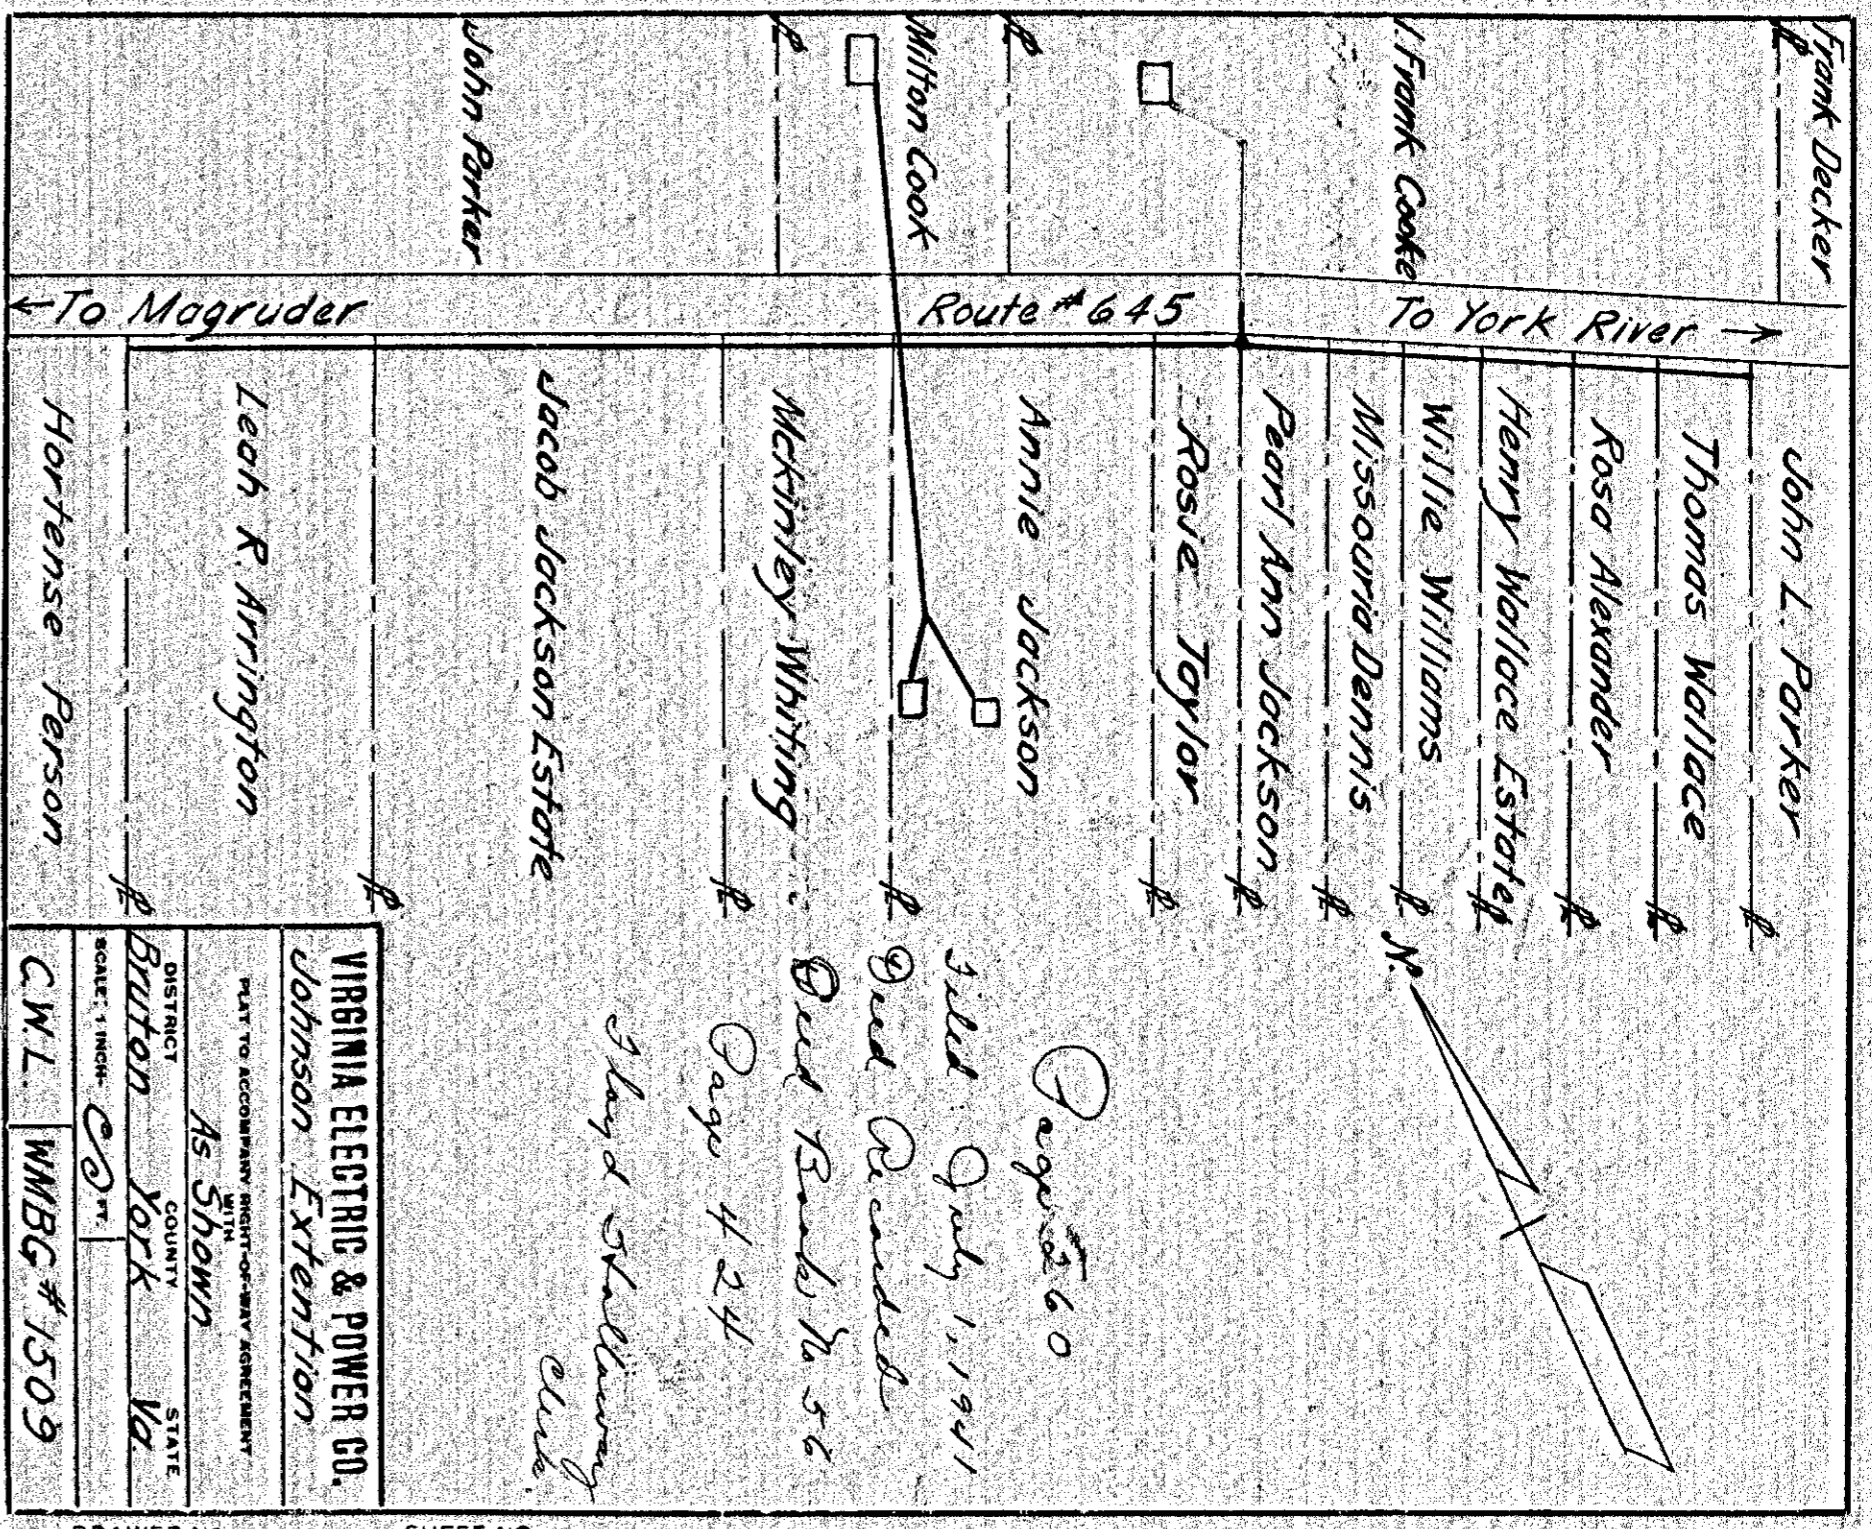 Frank Decker
I. Frank Cooke
Milton Cook
John Parker
← To Magruder
Route # 645
To York River →
John L. Parker
Thomas Wallace
Rosa Alexander
Henry Wallace Estate
Willie Williams
Missouria Dennis
Pearl Ann Jackson
Rosie Taylor
Annie Jackson
McKinley Whiting
Jacob Jackson Estate
Leah R. Arrington
Hortense Person
N.
Page 260
Filed July 1, 1941
Deed Recorded
Deed Book No 56
Page 424
Floyd Stallaway
Clerk.
VIRGINIA ELECTRIC & POWER CO.
Johnson Extention
PLAT TO ACCOMPANY RIGHT-OF-WAY AGREEMENT
WITH
As Shown
DISTRICT COUNTY STATE
Bruton York Va.
SCALE, 1 INCH= FT.
C.W.L. WMBG # 1509